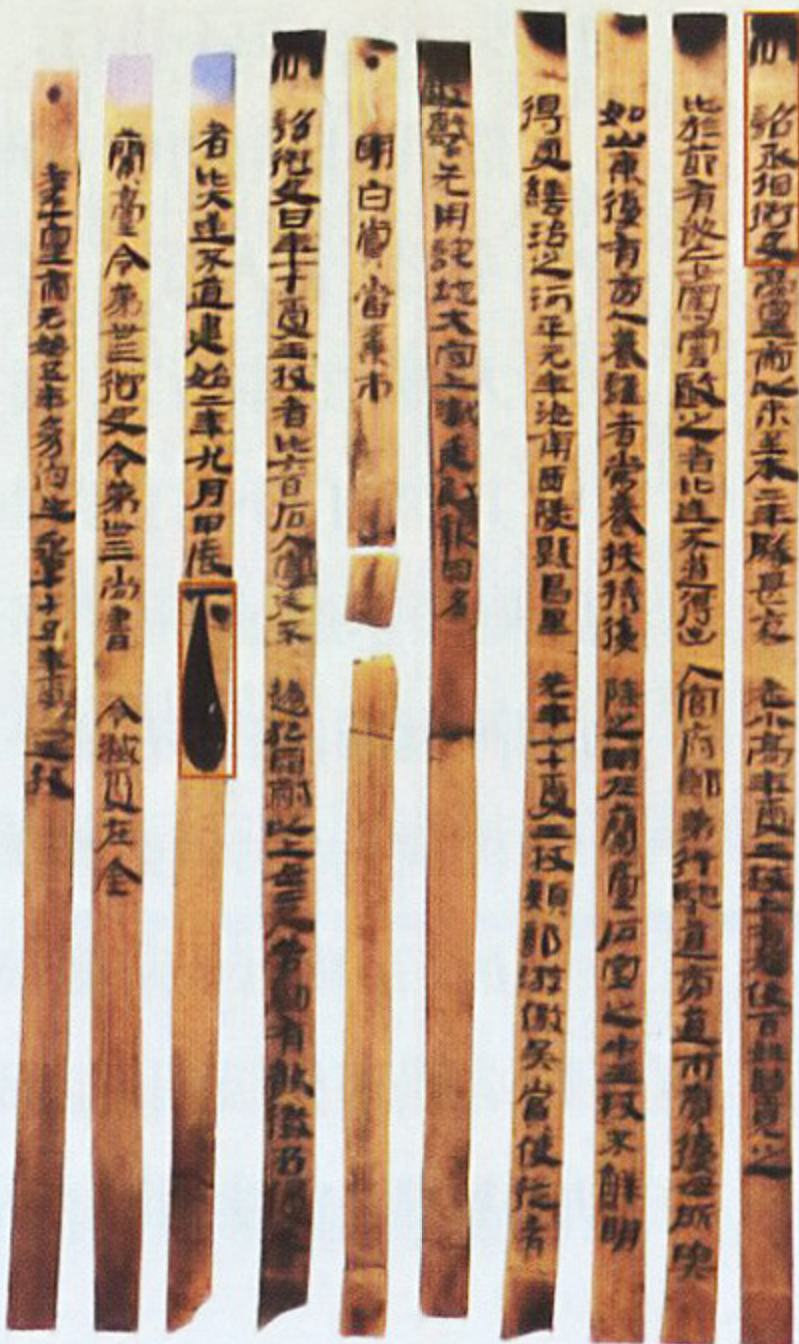 制 詔丞相御史高皇帝以來至本二年朕甚哀 老小高年受王杖上有鳩使百姓望見之
比於節有敢妄罵詈毆之者比逆不道得出 入官府郎第行馳道旁道市賣復毋所與
如山東復有旁人養謹者常養扶持復 除之明在蘭臺石室之中王杖不鮮明
得更繕治之河平元年汝南西陵縣昌里 先年七十受王杖熲部游徼吳賞使從者
毆擊先用詫地大守上讞廷尉報罪名
明白賞當棄市
制 詔御史曰年七十受王杖者比六百石入宮廷不 趨犯罪耐以上毋二尺告劾有敢徵召侵
者比大逆不道建始二年九月甲辰下
蘭臺令第卅三御史令第卌三尚書 令滅受在金
孝平皇帝元始五年幼伯生永平十五年受王杖